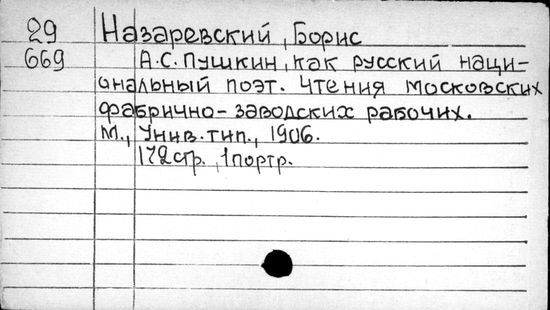 29 Назаревский, Борис
669 А.С. Пушкин, как русский наци-
ональный поэт. Чтения московских
фабрично-заводских рабочих.
М., Унив. тип., 1906.
172 стр., 1 портр.